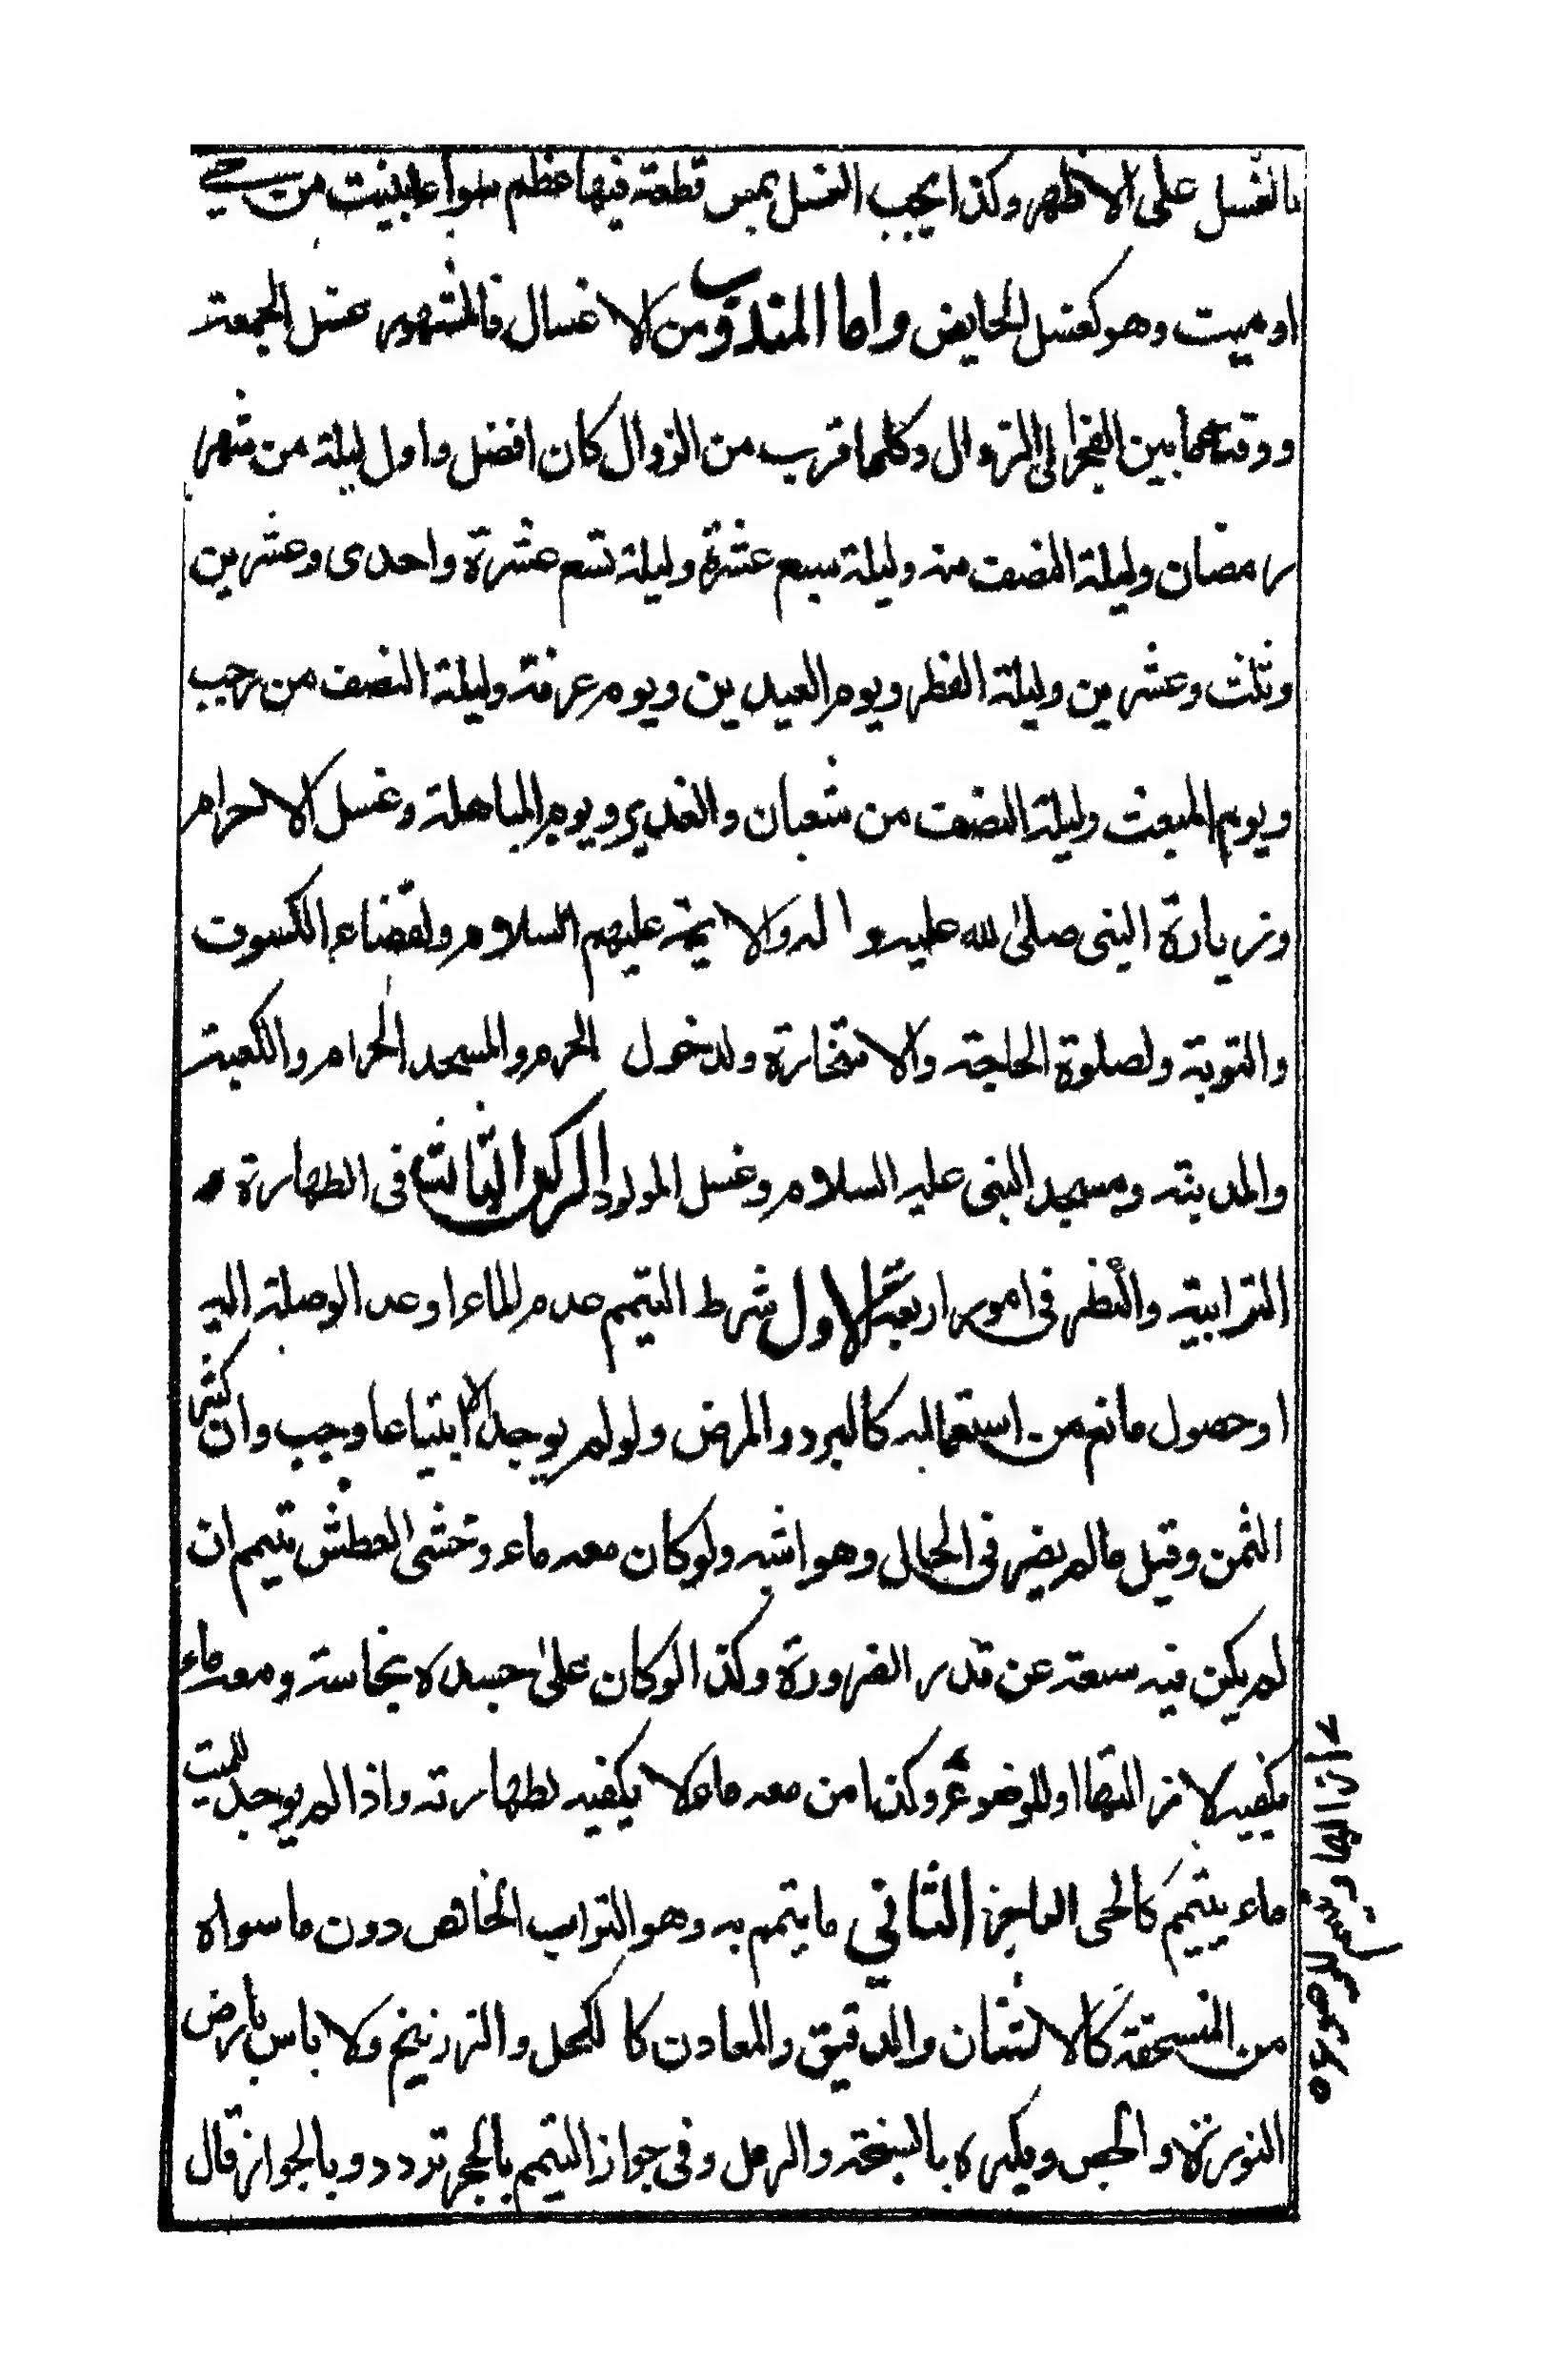 بالغسل على الاظهر وكذا يجب الغسل بمس قطعة فيها عظم سواء ابنيت من حي
او ميت وهو كغسل الحايض واما المندوب من الاغسال فالمشهور غسل الجمعة
ووقته ما بين الفجر الى الزوال وكلما قرب من الزوال كان افضل واول ليلة من شهر
رمضان وليلة النصف منه وليلة سبع عشرة وليلة تسع عشرة واحدى وعشرين
وثلث وعشرين وليلة الفطر ويوم العيدين ويوم عرفة وليلة النصف من رجب
ويوم المبعث وليلة النصف من شعبان والغدير ويوم المباهلة وغسل الاحرام
وزيارة النبي صلى الله عليه واله والايمة عليهم السلام ولقضاء الكسوف
والتوبة ولصلوة الحاجة والاستخارة ولدخول الحرم والمسجد الحرام والكعبة
والمدينة ومسجد النبي عليه السلام وغسل المولود الركن الثالث في الطهارة
الترابية والنظر في امور اربعة الاول شرط التيمم عدم الماء او عدم الوصلة اليه
او حصول مانع من استعماله كالبرد والمرض ولو لم يوجد الا ابتياعا وجب وان كثر
الثمن وقيل ما لم يضر في الحال وهو اشبه ولو كان معه ماء وخشى العطش تيمم ان
لم يكن فيه سعة عن قدر الضرورة وكذا لو كان على جسده نجاسة ومعه ماء
يكفيه لازالتها او للوضوء وكذا من معه ماء لا يكفيه لطهارته واذا لم يوجد للميت
ماء ييمم كالحى العاجز الثاني ما يتمم به وهو التراب الخالص دون ما سواه
من المنسحقة كالاشنان والدقيق والمعادن كالكحل والزرنيخ ولا باس بارض
النورة والجص ويكره بالسبخة والرمل وفي جواز التيمم بالحجر تردد وبالجواز قال